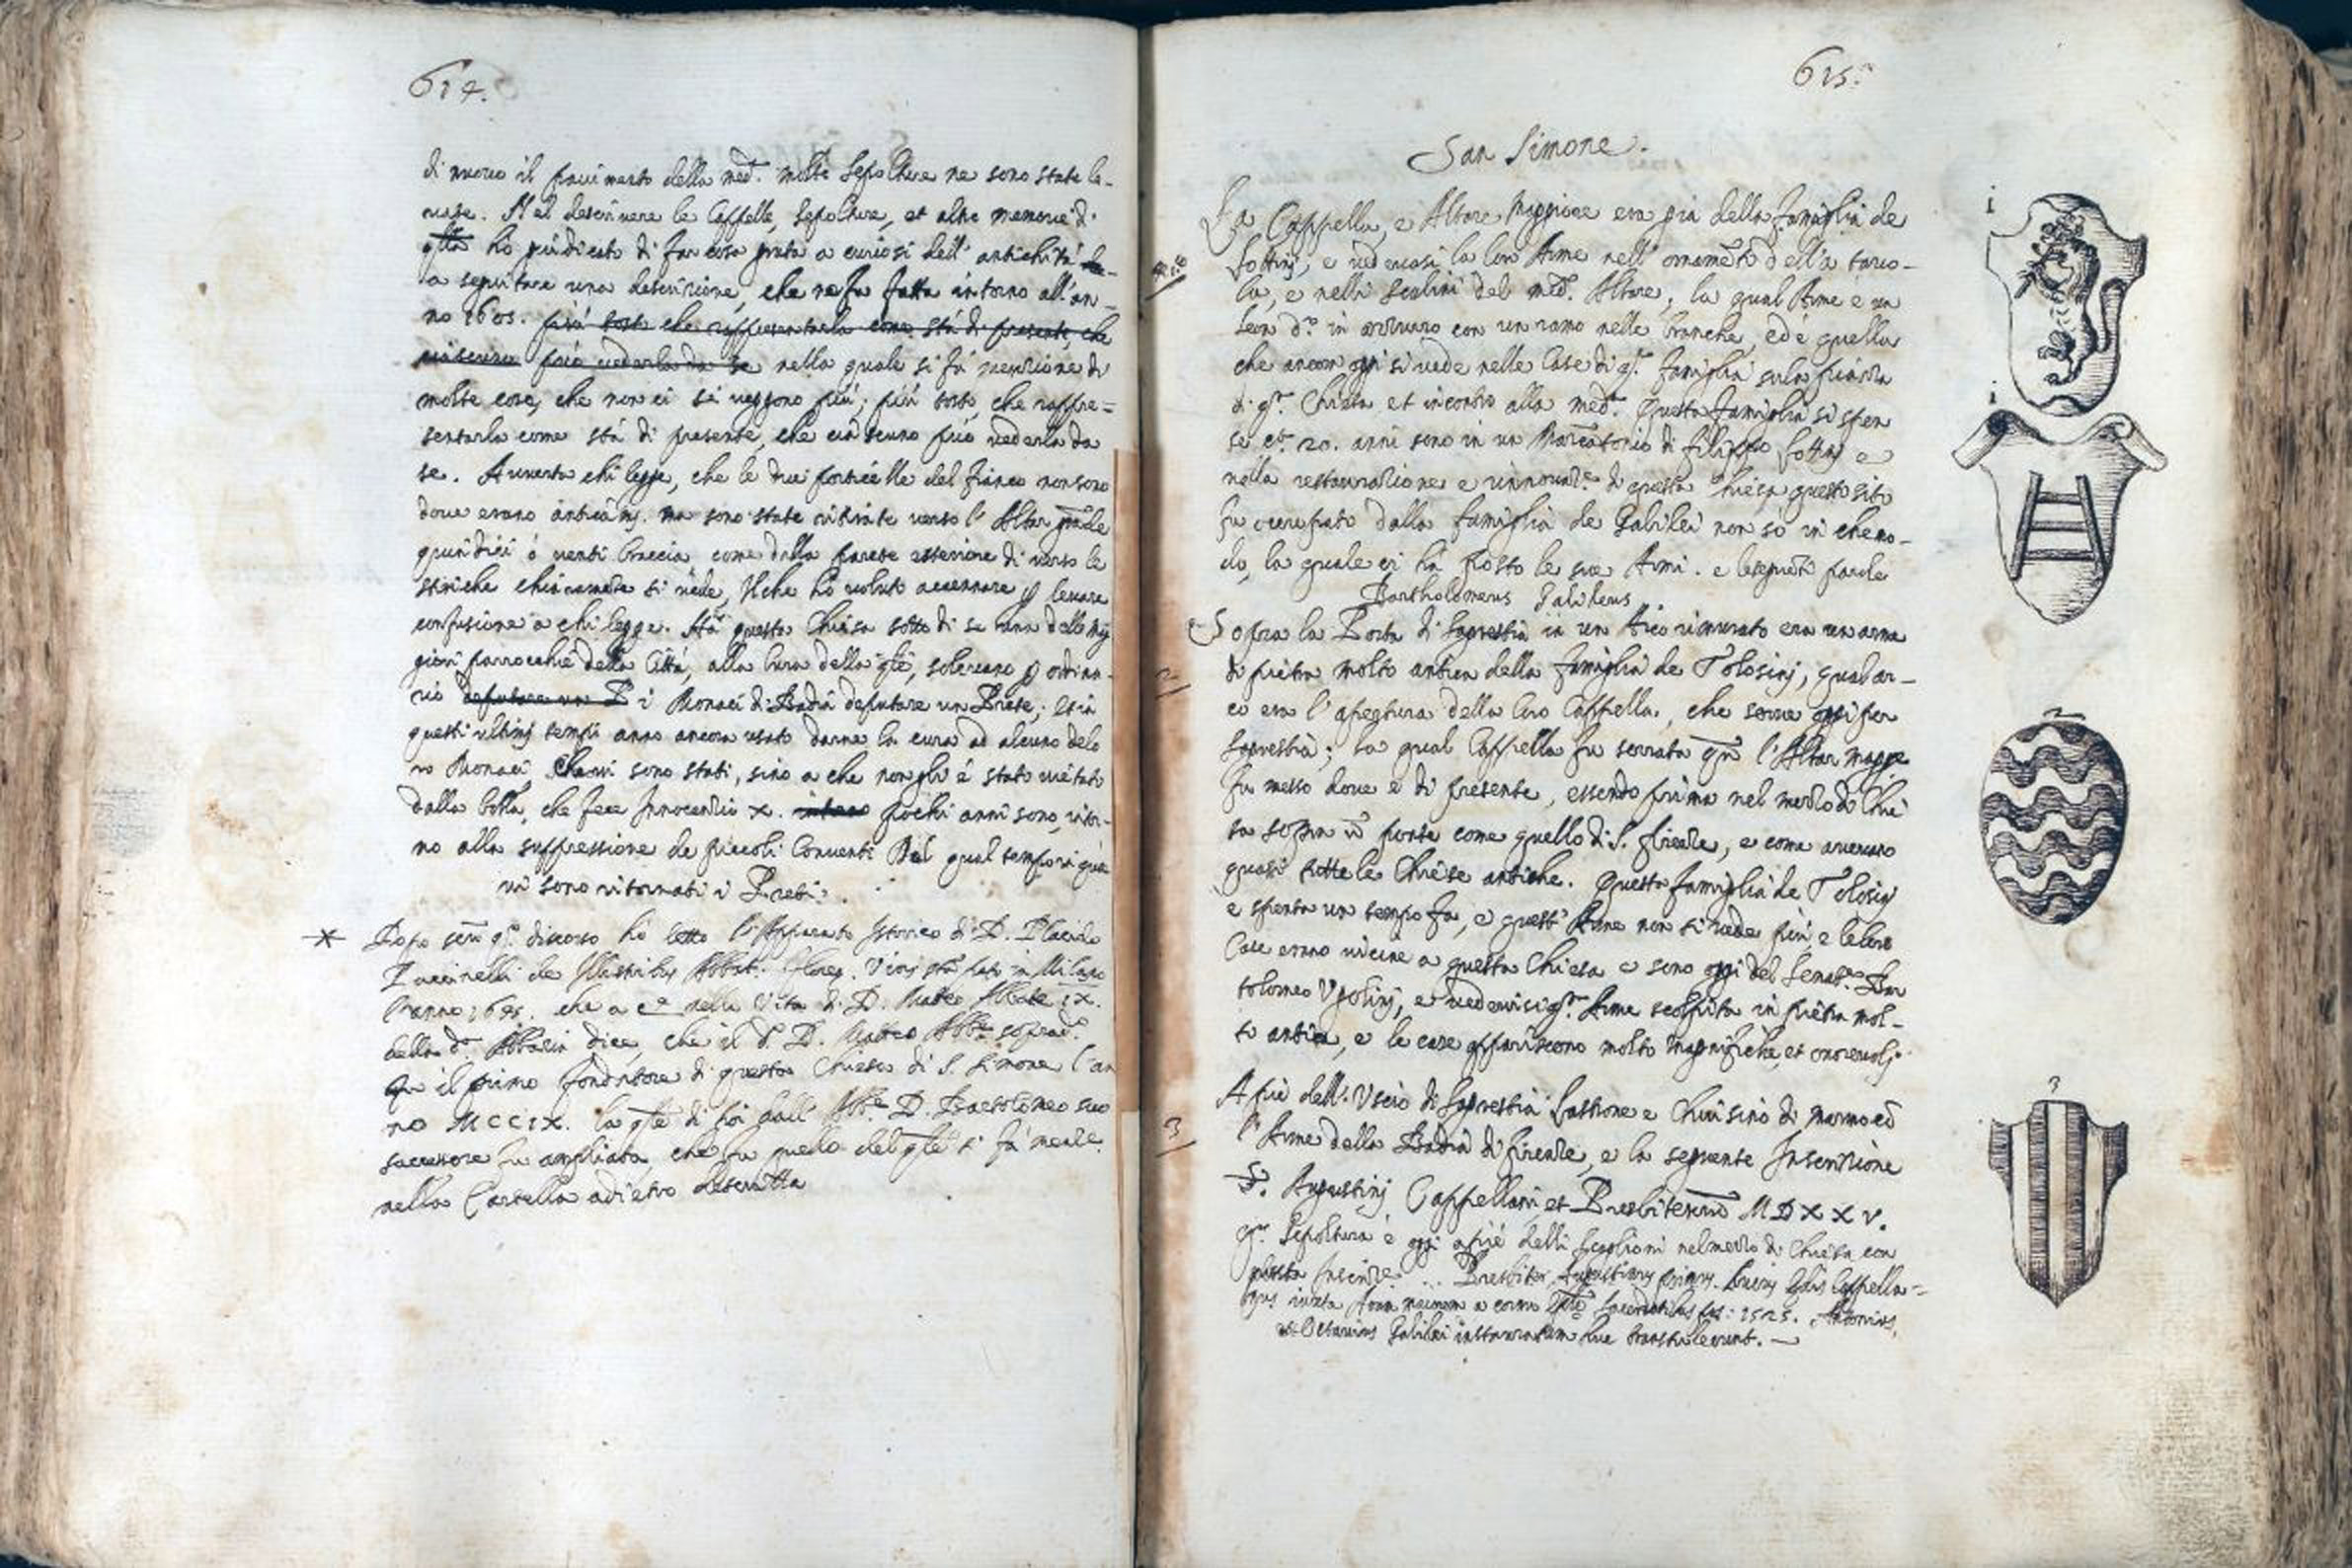 614.
di nuovo il pavimento della med.ª molte sepolture ne sono state le-
vate. Nel descrivere le Cappelle, Sepolture, et altre memorie di
qsta ho giudicato di far cosa grata a curiosi dell' antichità
a seguitare una descrizione, che ne fu fatta intorno all'an-
no 1605. più tosto che rappresentarla come stà di presente, che
ciascuno può vederla da se nella quale si fà menzione di
molte cose, che non ci si veggono più; più tosto, che rappre=
sentarla come stà di presente, che ciascuno può vederla da
se. Avverta chi legge, che le due porticelle del fianco non sono
dove erano anticam. ma sono state ritirate verso l' Altar grande
quindici ò venti braccia come dalla parete esteriore di verso le
stinche chiaramente si vede, Il che hò voluto accennare p levare
confusione a chi legge. Hà questa Chiesa sotto di se una delle mag
giori parrocchie della Città, alla Cura della qle, solevano p ordina-
rio deputare un P i Monaci di Badia deputare un Prete, e in
questi ultimi tempi anno ancora usato darne la cura ad alcuno de lo
ro Monaci che vi sono stati, sino a che non gli è stato vietato
dalla bolla, che fece Innocentio X. pochi anni sono, intor-
no alla suppressione de piccoli Conventi Nel qual tempo in quà
vi sono ritornati i Preti.
* Dopo qs. discorso ho letto l'Apparato Istorico di D. Placido
Puccinelli de Illustribus Abbat. Floren. Viris stapato in Milano
l'anno 1645. che a c.e nella Vita di D. Matteo Abbate IX.
della d.ª Abbazia dice, che il d. D. Matteo Abb.e soprad.
fu il primo fondatore di questa Chiesa di S. Simone l'an
no MCCIX. la qle di poi dall' Abb.e D. Bartolomeo suo
successore fu ampliata, che fu quello del qle si fà menz.e
nella Cartella adietro descritta
615.
San Simone.
La Cappella, e Altare Maggiore era già della famiglia de
Lottini, e vedevasi la loro Arme nell' ornameto della tavo-
la, e nelli scalini del med. Altare, la qual Arme è un
Leon d.° in azzurro con un ramo nelle branche, ed è quella
che ancor oggi si vede nelle Case di q.ª famiglia sula piazza
di q.ª Chiesa et incontro alla med.ª Questa famiglia si spen
se 20. anni sono in un di Filippo Lottini e
nella restaurazione e rinnovaz.e di questa Chiesa questo sito
fu occupato dalla famiglia de Galilei non sò in che mo-
do, la quale ci hà posto le sue Armi. e le seguenti parole
Bartholomeus Galileus
Sopra la Porta di Sagrestia in un Arco rimurato era un arme
di pietra molto antica della famiglia de Tolosini, qual ar-
co era l'apertura della loro Cappella, che serve oggi per
Sagrestia; la qual Cappella fu serrata qn l'Altar magge
fu messo dove è di presente, essendo prima nel mezzo di Chie
sa sopra un ponte come quello di S. Firenze, e come avevano
quasi tutte le Chiese antiche. Questa famiglia de Tolosini
è spenta un tempo fa, e quest' Arme non si vede più, e le loro
Case erano vicine a questa Chiesa e sono oggi del Senat.re Bar
tolomeo Ugolini, e vedevisi q.ª Arme scolpita in pietra mol-
to antica, e le case appariscono molto magnifiche, et onorevoli.
A piè dell' Uscio di Sagrestia Lastrone e Chiusino di marmo co
l'Arme della Badia di Firenze, e la seguente Inscrizione
S. Augustini Cappellani, et Presbiterum MDXXV.
q.ª Sepoltura è oggi a piè delli Scaglioni nel mezzo di Chiesa con
questa Inscriz.e ... Presbiter Augustinus primus huius Cappella=
nus iuxta Aram maximam a cornu Sacerdotibus fec: 1525. Antonius,
et Octavius Galilei instauratam huc transtulerunt.
2
3
1
1
2
3